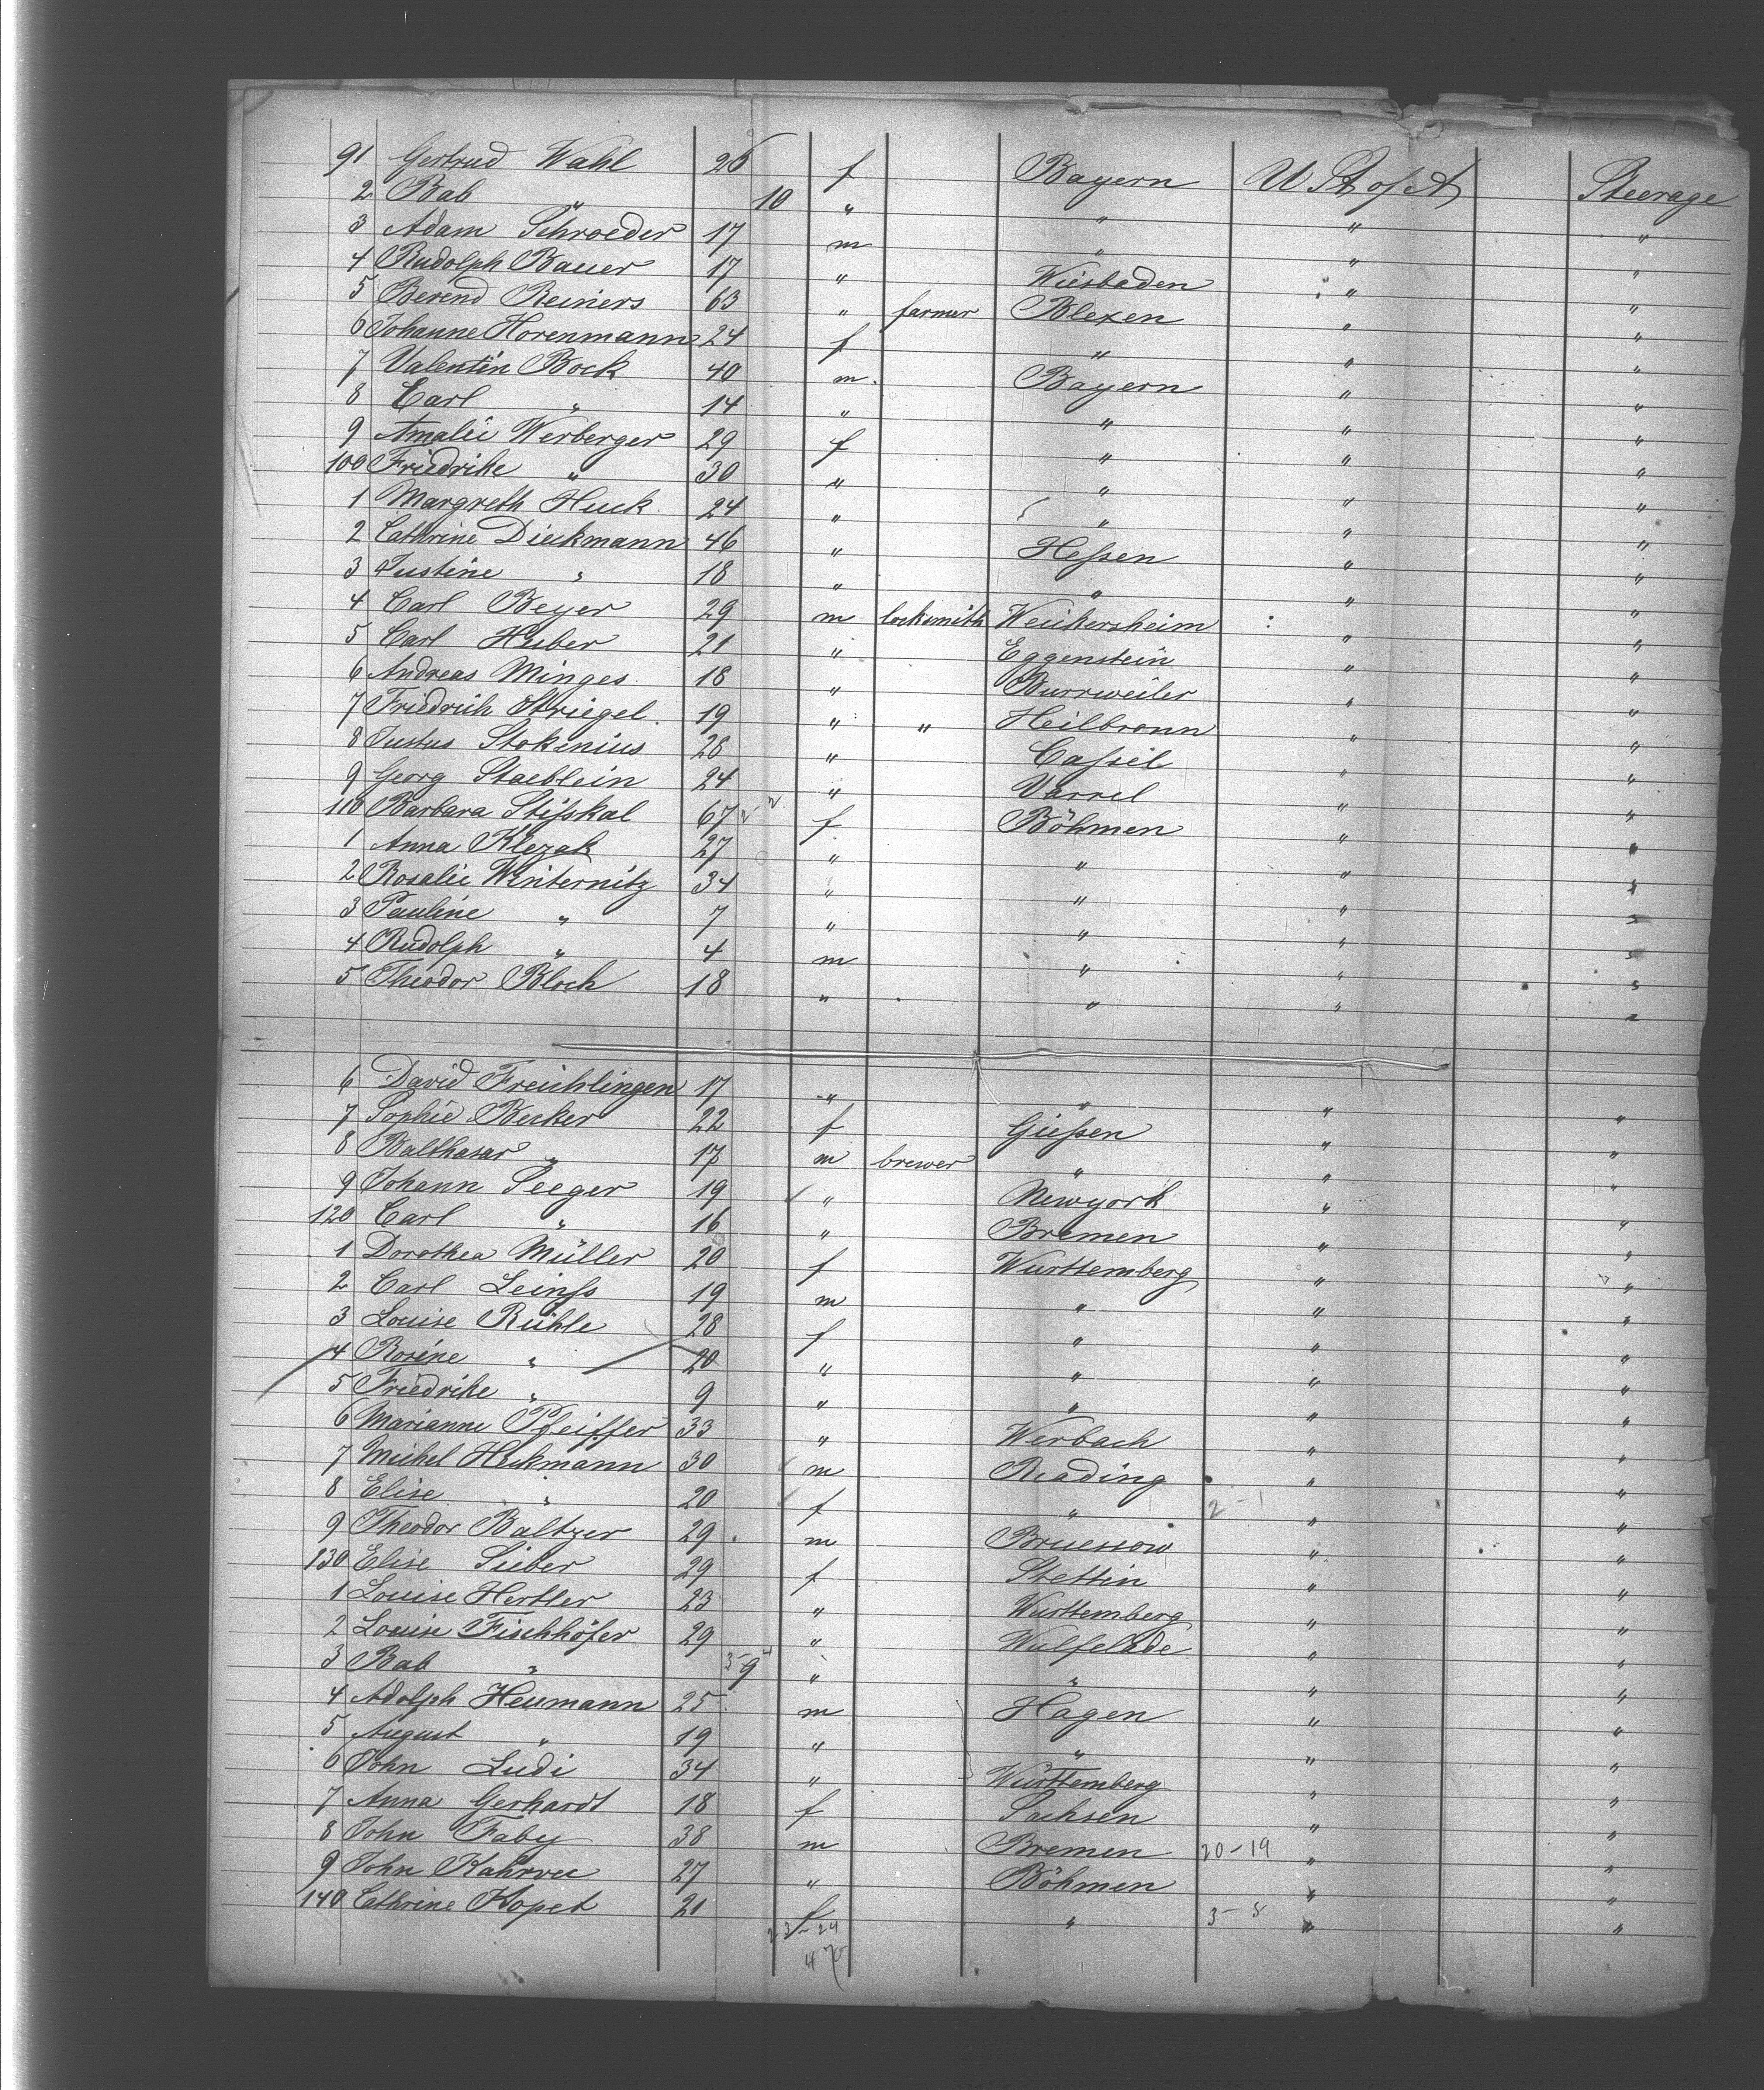 91 Gertrud Wahl 26 f Bayern U St of A Steerage
2 Bab " 10 " " " "
3 Adam Schroeder 17 m " " "
4 Rudolph Bauer 17 " Wiesbaden " "
5 Berend Reiners 63 " farmer Blexen " "
6 Johanne Horenmann 24 f " " "
7 Valentin Bock 40 m Bayern " "
8 Carl " 14 " " " "
9 Amalie Werberger 29 f " " "
100 Friedrike " 30 " " " "
1 Margreth Huck 24 " " " "
2 Cathrine Dieckmann 46 " Hessen " "
3 Justine " 18 " " " "
4 Carl Beyer 29 m locksmith Weikersheim " "
5 Carl Huber 21 " Eggenstein " "
6 Andreas Minges 18 " Burrweiler " "
7 Friedrich Striegel 19 " " Heilbronn " "
8 Justus Stokinius 28 " Cassel " "
9 Georg Staeblein 24 " Varrel " "
110 Barbara Stifskal 67 f Böhmen " "
1 Anna Klezak 27 " " " "
2 Rosalie Winternitz 34 " " " "
3 Pauline " 7 " " " "
4 Rudolph " 4 m " " "
5 Theodor Bloch 18 " " " "
6 David Freuhlingen 17 " " " "
7 Sophie Becker 22 f Giessen " "
8 Balthasar " 17 m brewer " " "
9 Johann Seeger 19 " Newyork " "
120 Carl " 16 " Bremen " "
1 Dorothea Müller 20 f Wurttemberg " "
2 Carl Leinss 19 m " " "
3 Louise Rühle 28 f " " "
4 Rosine " 20 " " " "
5 Friedrike " 9 " " " "
6 Marianne Pfeiffer 33 " Werbach " "
7 Michel Heckmann 30 m Reading " "
8 Elise " 20 f " 2-1 " "
9 Theodor Baltzer 29 m Bruessow " "
130 Elise Sieber 29 f Stettin " "
1 Louise Hertler 23 " Wurttemberg " "
2 Louise Fischhöfer 29 " Wulfelade " "
3 Bab " 9 " " " "
4 Adolph Heumann 25 m Hagen " "
5 August " 19 " " " "
6 John Ludi 34 " Wurttemberg " "
7 Anna Gerhardt 18 f Sachsen " "
8 John Faby 38 m Bremen 20-19 " "
9 John 27 " Böhmen " "
140 Cathrine Kopet 21 f " 3-5 " "
23-24
47